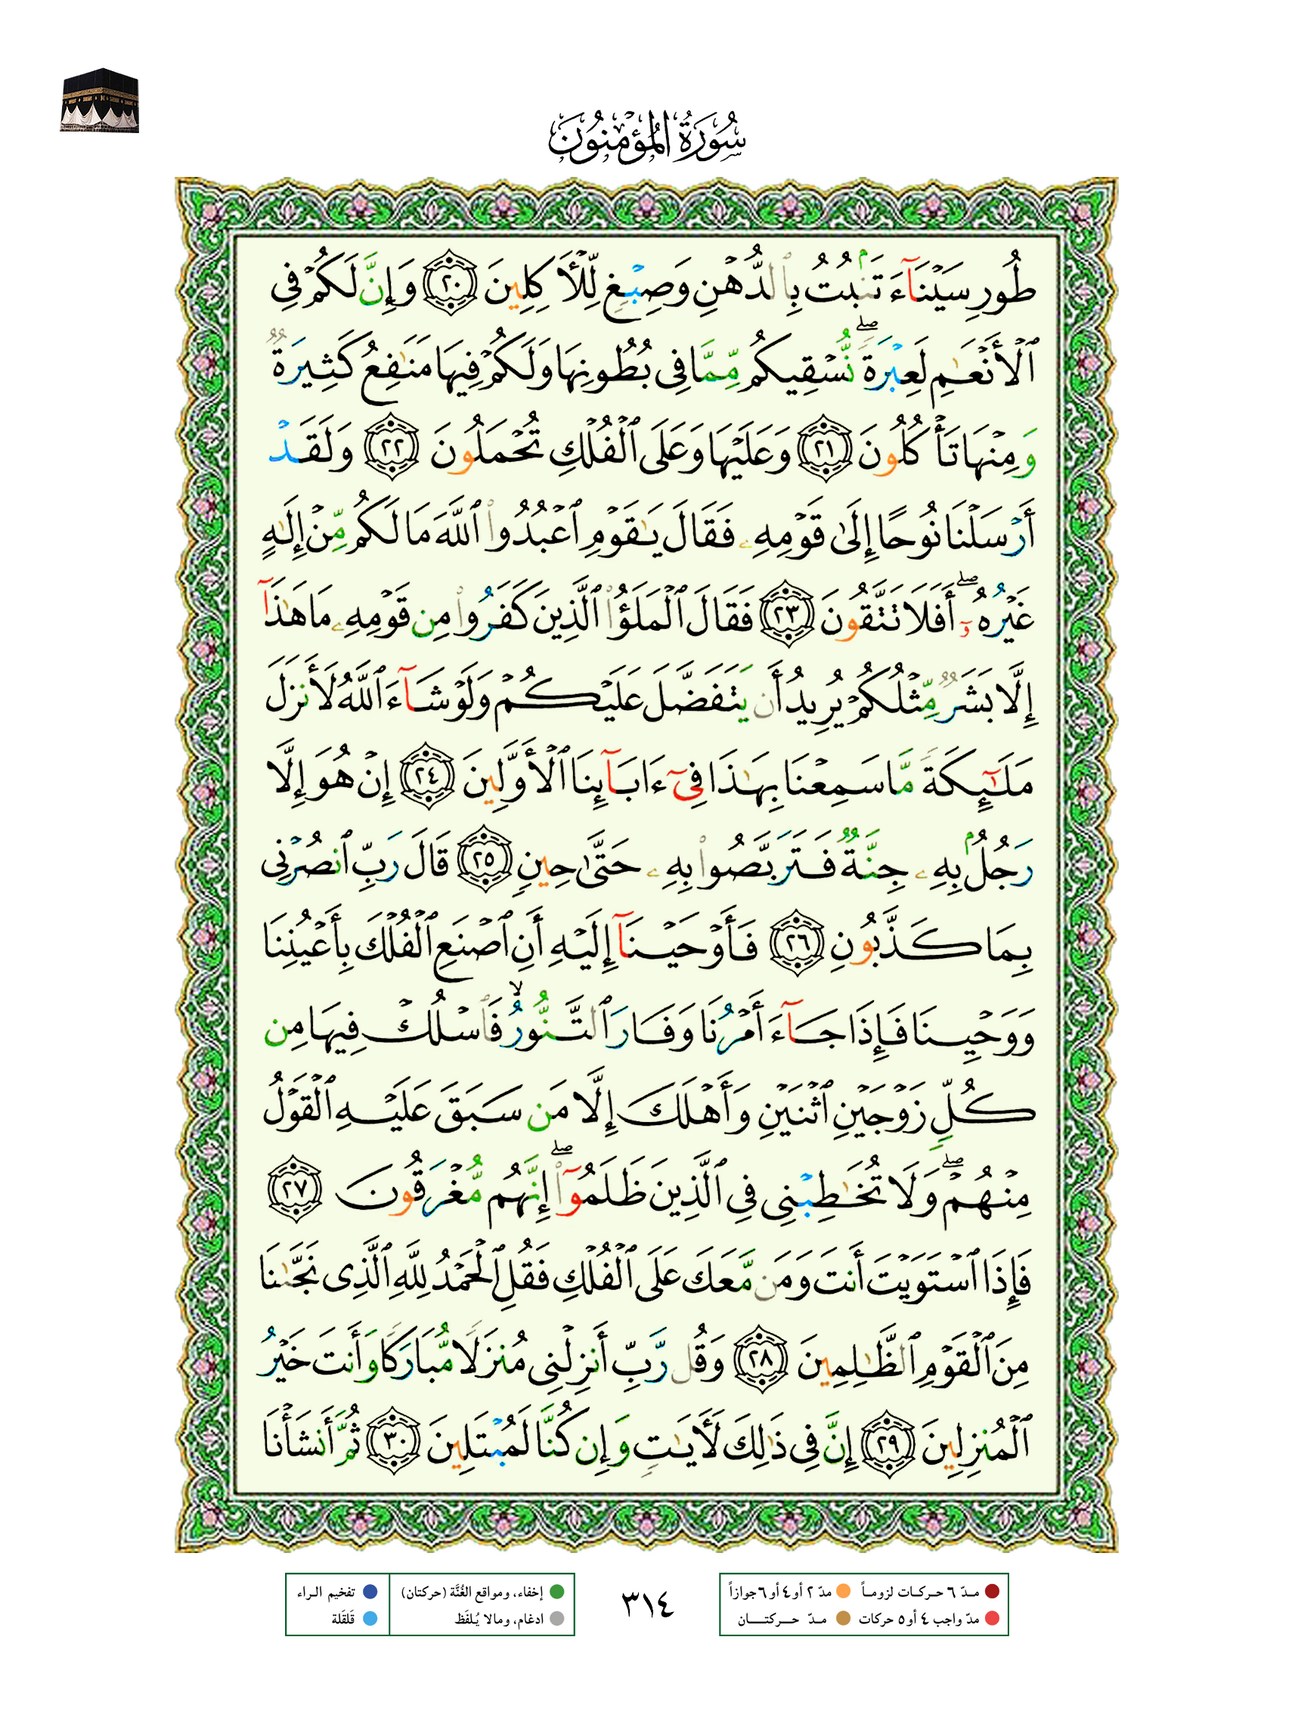 سُورَةُ المُؤْمِنُونَ
طُورِ سَيْنَآءَ تَنۢبُتُ بِٱلدُّهْنِ وَصِبْغٍ لِّلْأَكِلِينَ ﴿٢٠﴾ وَإِنَّ لَكُمْ فِى
ٱلْأَنْعَـٰمِ لَعِبْرَةً ۖ نُّسْقِيكُم مِّمَّا فِى بُطُونِهَا وَلَكُمْ فِيهَا مَنَـٰفِعُ كَثِيرَةٌ
وَمِنْهَا تَأْكُلُونَ ﴿٢١﴾ وَعَلَيْهَا وَعَلَى ٱلْفُلْكِ تُحْمَلُونَ ﴿٢٢﴾ وَلَقَدْ
أَرْسَلْنَا نُوحًا إِلَىٰ قَوْمِهِۦ فَقَالَ يَـٰقَوْمِ ٱعْبُدُوا۟ ٱللَّهَ مَا لَكُم مِّنْ إِلَـٰهٍ
غَيْرُهُۥٓ ۖ أَفَلَا تَتَّقُونَ ﴿٢٣﴾ فَقَالَ ٱلْمَلَؤُا۟ ٱلَّذِينَ كَفَرُوا۟ مِن قَوْمِهِۦ مَا هَـٰذَآ
إِلَّا بَشَرٌ مِّثْلُكُمْ يُرِيدُ أَن يَتَفَضَّلَ عَلَيْكُمْ وَلَوْ شَآءَ ٱللَّهُ لَأَنزَلَ
مَلَـٰٓئِكَةً مَّا سَمِعْنَا بِهَـٰذَا فِىٓ ءَابَآئِنَا ٱلْأَوَّلِينَ ﴿٢٤﴾ إِنْ هُوَ إِلَّا
رَجُلٌۢ بِهِۦ جِنَّةٌ فَتَرَبَّصُوا۟ بِهِۦ حَتَّىٰ حِينٍ ﴿٢٥﴾ قَالَ رَبِّ ٱنصُرْنِى
بِمَا كَذَّبُونِ ﴿٢٦﴾ فَأَوْحَيْنَآ إِلَيْهِ أَنِ ٱصْنَعِ ٱلْفُلْكَ بِأَعْيُنِنَا
وَوَحْيِنَا فَإِذَا جَآءَ أَمْرُنَا وَفَارَ ٱلتَّنُّورُ ۙ فَٱسْلُكْ فِيهَا مِن
كُلٍّ زَوْجَيْنِ ٱثْنَيْنِ وَأَهْلَكَ إِلَّا مَن سَبَقَ عَلَيْهِ ٱلْقَوْلُ
مِنْهُمْ ۖ وَلَا تُخَـٰطِبْنِى فِى ٱلَّذِينَ ظَلَمُوٓا۟ ۖ إِنَّهُم مُّغْرَقُونَ ﴿٢٧﴾
فَإِذَا ٱسْتَوَيْتَ أَنتَ وَمَن مَّعَكَ عَلَى ٱلْفُلْكِ فَقُلِ ٱلْحَمْدُ لِلَّهِ ٱلَّذِى نَجَّىٰنَا
مِنَ ٱلْقَوْمِ ٱلظَّـٰلِمِينَ ﴿٢٨﴾ وَقُل رَّبِّ أَنزِلْنِى مُنزَلًا مُّبَارَكًا وَأَنتَ خَيْرُ
ٱلْمُنزِلِينَ ﴿٢٩﴾ إِنَّ فِى ذَٰلِكَ لَـَٔايَـٰتٍ وَإِن كُنَّا لَمُبْتَلِينَ ﴿٣٠﴾ ثُمَّ أَنشَأْنَا
مـدّ ٦ حـركـات لزومـاً مدّ ٢ أو ٤ أو ٦ جوازاً
مدّ واجب ٤ أو ٥ حركات مـدّ حـــركتـــان
٣١٤
إخفاء، ومواقع الغُنَّة (حركتان) تفخيم الـراء
ادغام، ومالا يُـلفَظ قَلقَلة